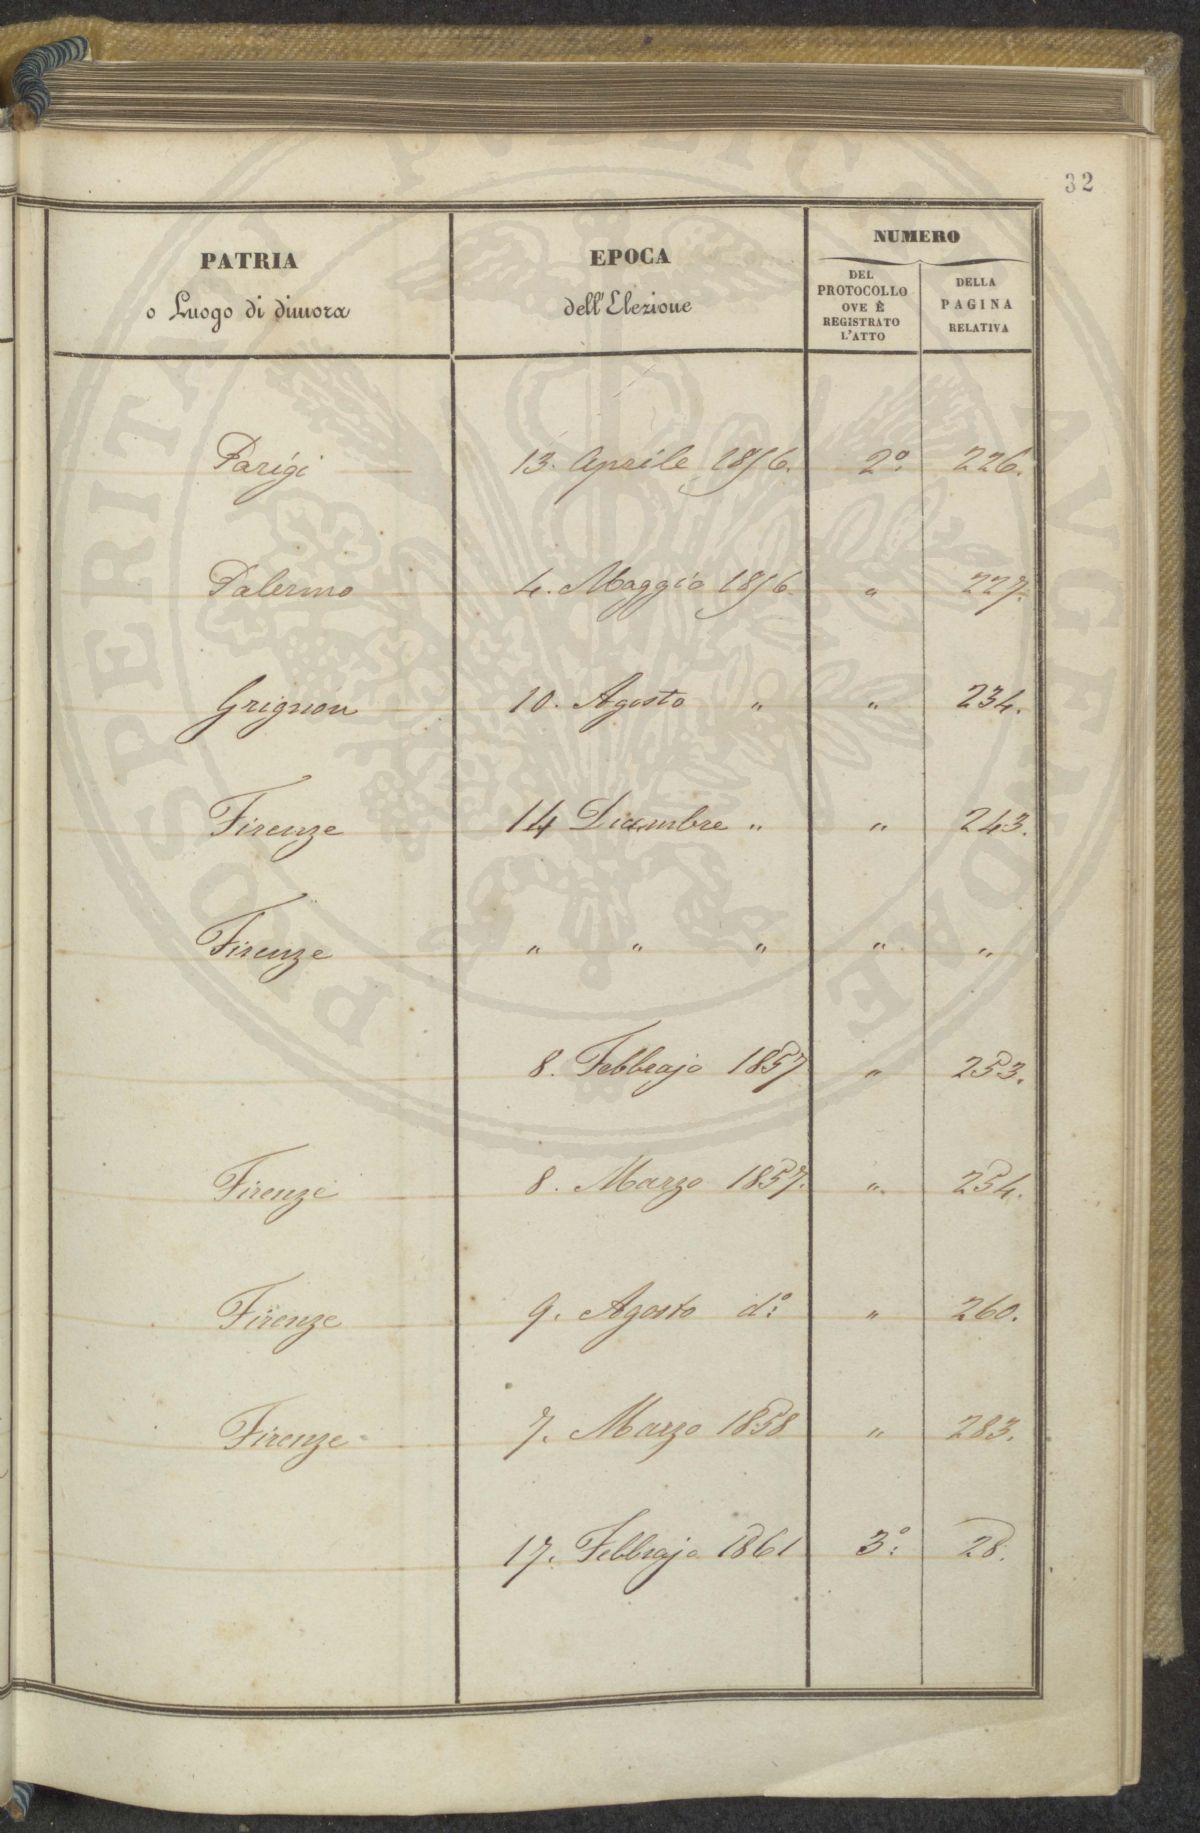 32
PATRIA
o Luogo di dimora
EPOCA
dell'Elezione
NUMERO
DEL
PROTOCOLLO
OVE È
REGISTRATO
L'ATTO
DELLA
PAGINA
RELATIVA
Parigi 13. Aprile 1856. 2º: 226.
Palermo 4. Maggio 1856. " 227.
Grignon 10. Agosto " " 234.
Firenze 14 Dicembre " " 243.
Firenze " " " " "
8. Febbrajo 1857 " 253.
Firenze 8. Marzo 1857. " 254.
Firenze 9. Agosto dº: " 260.
Firenze 7. Marzo 1858 " 283.
17. Febbrajo 1861 3º: 28.
PROSPERITATI PUBLICAE AVGENDAE